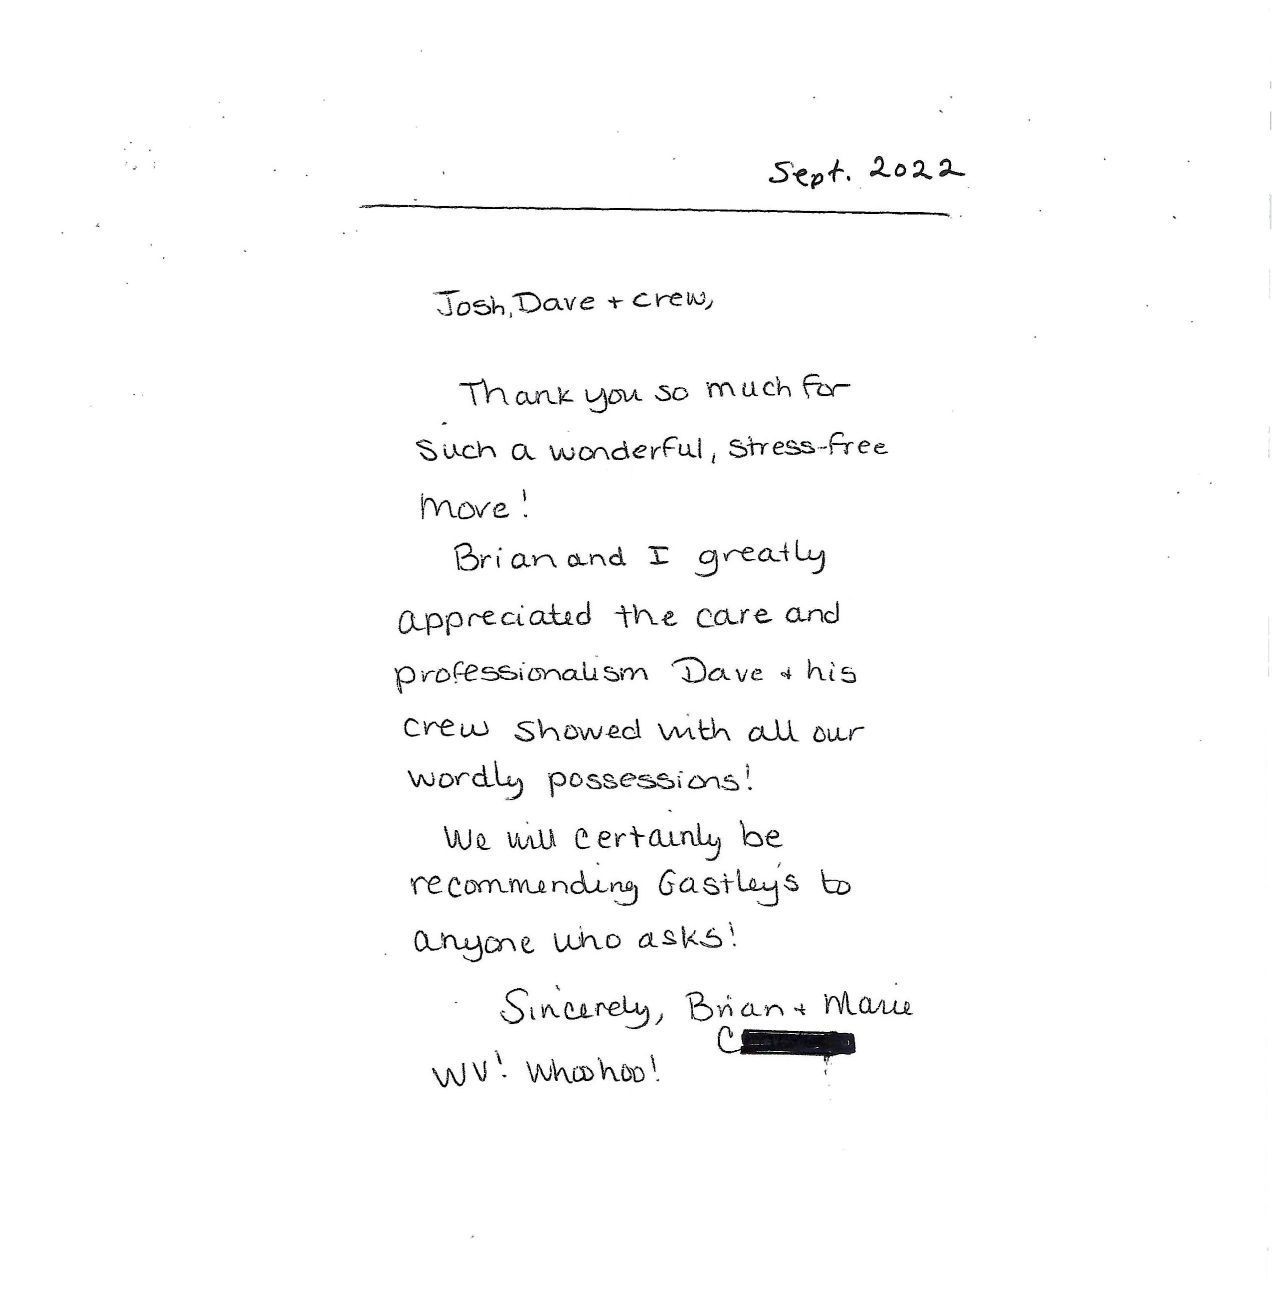 Sept. 2022
Josh, Dave + crew,
Thank you so much for
such a wonderful, stress-free
move!
Brian and I greatly
appreciated the care and
professionalism Dave + his
crew showed with all our
wordly possessions!
We will certainly be
recommending Gastley's to
anyone who asks!
Sincerely, Brian + Marie
C
WV! Whoohoo!